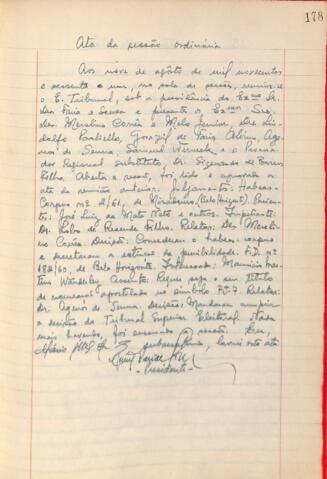 178
Ata da sessão ordinária
Aos nove de agôsto de mil novecentos
e sessenta e um, na sala de sessão, reuniu-se
o E. Tribunal, sob a presidência do Exmo Sr.
Des. Faria e Sousa e presente os Exmos Srs.
Des. Merolino Corrêa e Melo Junior, Drs.
dolfo Paolielo, Gorazil de Faria Alvim,
de Senna, Samuel e o Procura
dor Regional Substituto Dr. de Barros
Filho. Aberta a sessão, foi lida e aprovada a
ata da reunião anterior. Julgamentos: Habeas
Corpus nº 2/61, de (Belo Horizonte). Pacien
te: José Luiz da Mata Neto e outros. Impetrante:
Dr. Lobo de Rezende Filho. Relator: Des.
Corrêa. Decisão: Concederam o habeas-corpus
e decretaram a extinção da punibilidade. P.D. nº
182/60, de Belo Horizonte. Interessado: Mauricio
Wanderley. Assunto: Requer seja o seu titulo
de apostilado no símbolo PJ-7. Relator:
Dr. de Senna. Decisão: Mandaram cumprir
a decisão do Tribunal Superior Eleitoral. Nada
mais havendo, foi encerrada a sessão. Eu,
lavrei esta ata
- Presidente -